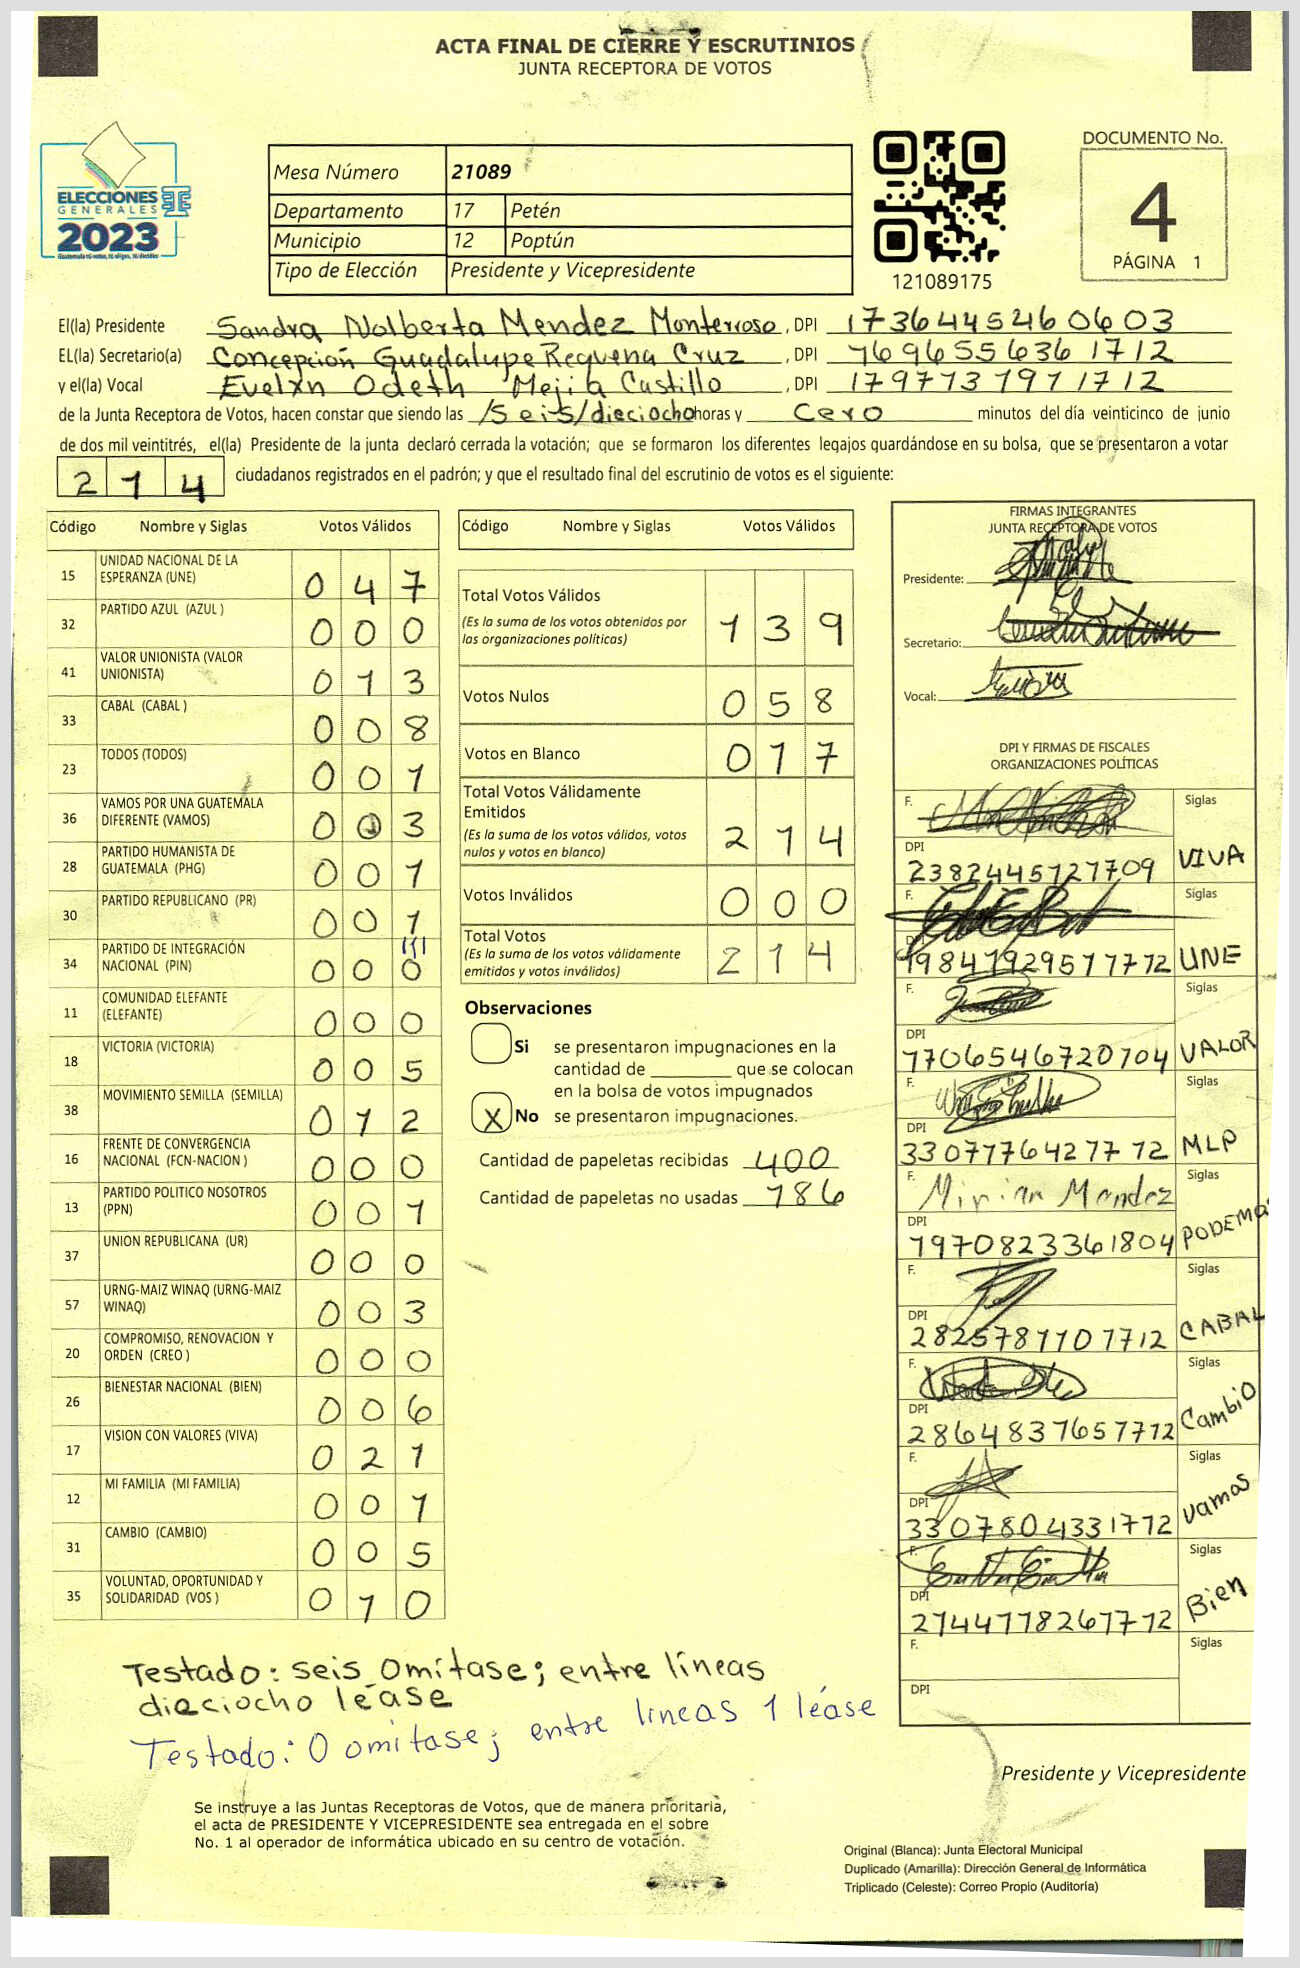 ACTA FINAL DE CIERRE Y ESCRUTINIOS
JUNTA RECEPTORA DE VOTOS
ELECCIONES
GENERALES
2023
Mesa Número 21089
Departamento 17 Petén
Municipio 12 Poptún
Tipo de Elección Presidente y Vicepresidente
121089175
DOCUMENTO No.
4
PÁGINA 1
El(la) Presidente Sandra Nolberta Mendez Monterroso, DPI 1736445460603
EL(la) Secretario(a) Concepción Guadalupe Requena Cruz, DPI 7696556361712
y el(la) Vocal Evelxn Odeth Mejia Castillo, DPI 1797737971712
de la Junta Receptora de Votos, hacen constar que siendo las /seis/dieciocho horas y cero minutos del día veinticinco de junio
de dos mil veintitrés, el(la) Presidente de la junta declaró cerrada la votación; que se formaron los diferentes legajos quardándose en su bolsa, que se presentaron a votar
214 ciudadanos registrados en el padrón; y que el resultado final del escrutinio de votos es el siguiente:
Código Nombre y Siglas Votos Válidos
15 UNIDAD NACIONAL DE LA ESPERANZA (UNE) 047
32 PARTIDO AZUL (AZUL ) 000
41 VALOR UNIONISTA (VALOR UNIONISTA) 013
33 CABAL (CABAL ) 008
23 TODOS (TODOS) 001
36 VAMOS POR UNA GUATEMALA DIFERENTE (VAMOS) 003
28 PARTIDO HUMANISTA DE GUATEMALA (PHG) 001
30 PARTIDO REPUBLICANO (PR) 001
34 PARTIDO DE INTEGRACIÓN NACIONAL (PIN) 000
11 COMUNIDAD ELEFANTE (ELEFANTE) 000
18 VICTORIA (VICTORIA) 005
38 MOVIMIENTO SEMILLA (SEMILLA) 012
16 FRENTE DE CONVERGENCIA NACIONAL (FCN-NACION ) 000
13 PARTIDO POLITICO NOSOTROS (PPN) 001
37 UNION REPUBLICANA (UR) 000
57 URNG-MAIZ WINAQ (URNG-MAIZ WINAQ) 003
20 COMPROMISO, RENOVACION Y ORDEN (CREO ) 000
26 BIENESTAR NACIONAL (BIEN) 006
17 VISION CON VALORES (VIVA) 021
12 MI FAMILIA (MI FAMILIA) 001
31 CAMBIO (CAMBIO) 005
35 VOLUNTAD, OPORTUNIDAD Y SOLIDARIDAD (VOS ) 010
Código Nombre y Siglas Votos Válidos
Total Votos Válidos 139
(Es la suma de los votos obtenidos por
las organizaciones políticas)
Votos Nulos 058
Votos en Blanco 017
Total Votos Válidamente
Emitidos 214
(Es la suma de los votos válidos, votos
nulos y votos en blanco)
Votos Inválidos 000
Total Votos 214
(Es la suma de los votos válidamente
emitidos y votos inválidos)
Observaciones
Si se presentaron impugnaciones en la
cantidad de ________ que se colocan
en la bolsa de votos impugnados
X No se presentaron impugnaciones.
Cantidad de papeletas recibidas 400
Cantidad de papeletas no usadas 186
FIRMAS INTEGRANTES
JUNTA RECEPTORA DE VOTOS
Presidente:
Secretario:
Vocal:
DPI Y FIRMAS DE FISCALES
ORGANIZACIONES POLÍTICAS
F. Siglas
DPI 2382445127709 VIVA
F. Siglas
DPI UNE
F. Siglas
DPI 7706546720704 VALOR
F. Siglas
DPI 3307776427712 MLP
F. Mirian Mendez Siglas
DPI 7970823361804 PODEMOS
F. Siglas
DPI 2825781107712 CABAL
F. Siglas
DPI 2864837657712 Cambio
F. Siglas
DPI 3307804331772 vamos
F. Siglas
DPI 2744778267772 Bien
F. Siglas
DPI
Testado: seis omítase; entre líneas
dieciocho léase
Testado: 0 omitase; entre lineas 1 léase
Presidente y Vicepresidente
Se instruye a las Juntas Receptoras de Votos, que de manera prioritaria,
el acta de PRESIDENTE Y VICEPRESIDENTE sea entregada en el sobre
No. 1 al operador de informática ubicado en su centro de votación.
Original (Blanca): Junta Electoral Municipal
Duplicado (Amarilla): Dirección General de Informática
Triplicado (Celeste): Correo Propio (Auditoría)